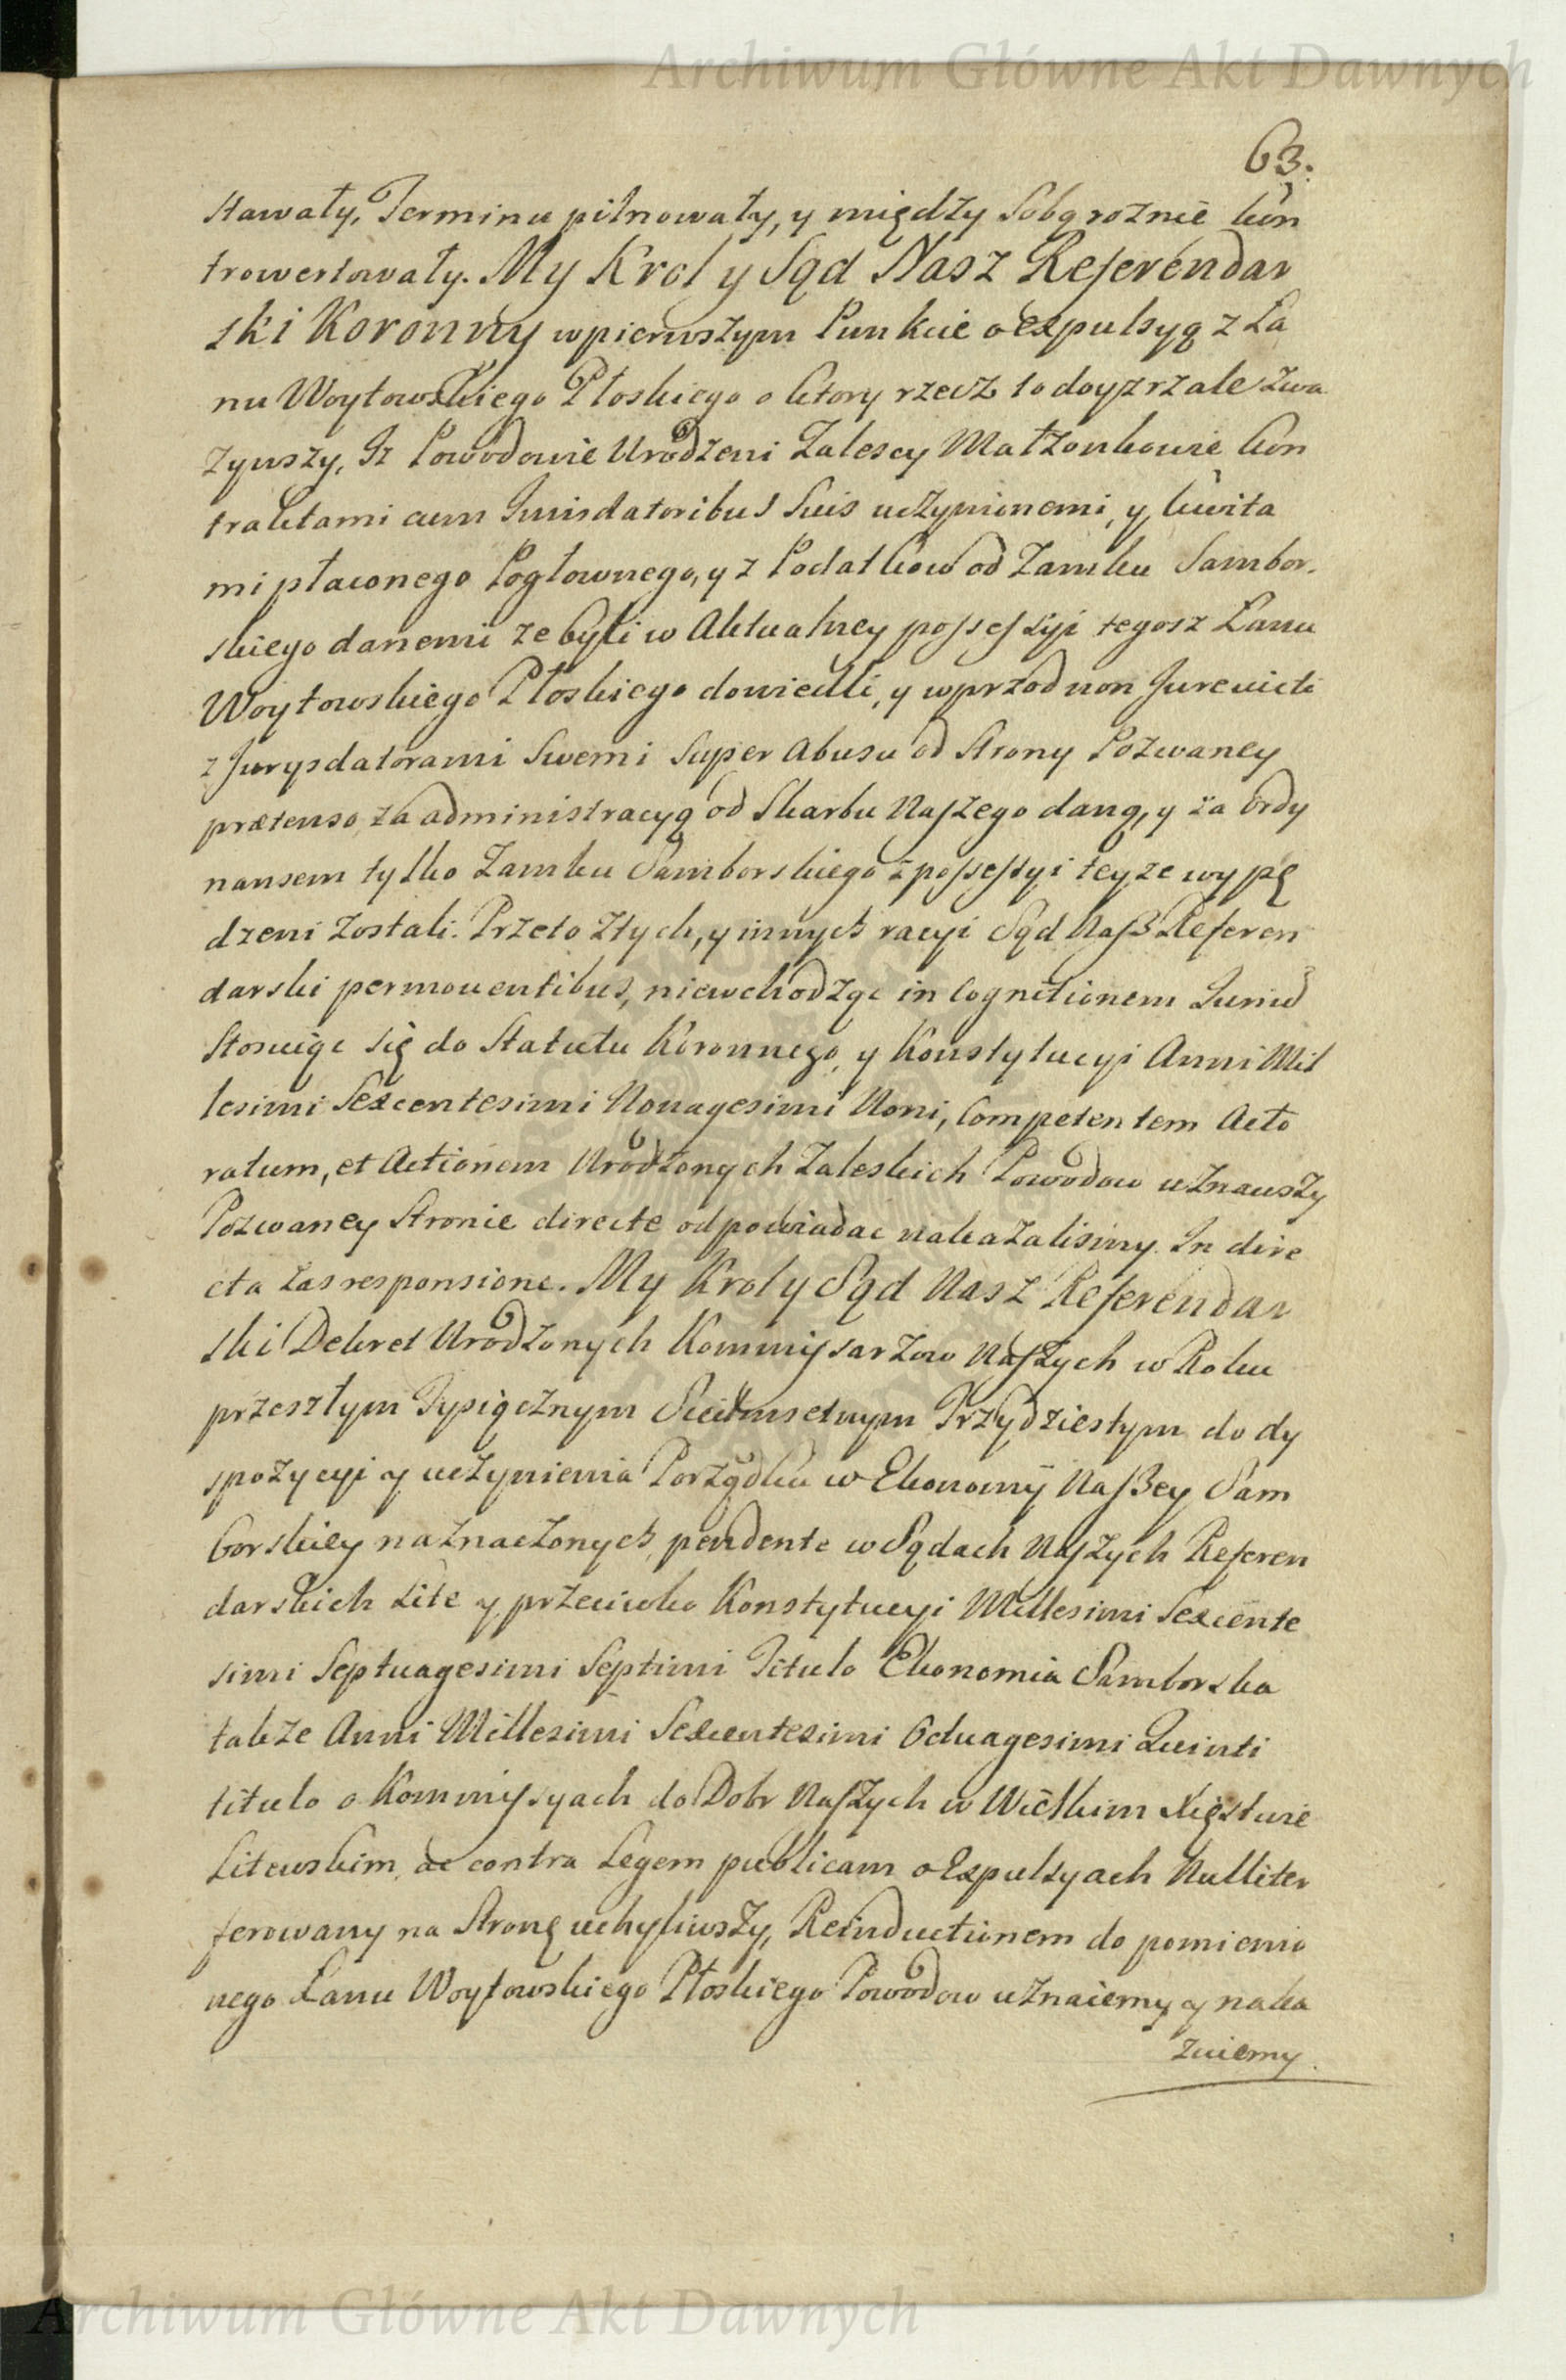 Archiwum Główne Akt Dawnych
63.
stawały, Terminu pilnowały, y między Sobą roznie kon
trowertowały. My Krol y Sąd Nasz Referendar
ski Koronny w pierwszym Punkcie o expulsyą z Ła
nu Woytowskiego Płoskiego o ktory rzecz to doyzrzale zwa
zywszy, Iz Powodowie Urodzeni Zalescy Małżonkowie kon
traktami cum Jurisdatoribus Suis uczynionemi, y kwita
mi płaconego Pogłownego, y z Podatkow od Zamku Sambor.
skiego danemi ze byli w Aktualney possessyi tegosz Łanu
Woytowskiego Płoskiego dowiedli, y wprzod non Jurevicti
z Jurysdatorami Swemi Super Abusu od Strony Pozwaney
prætenso, za administracyą od Skarbu Naszego daną, y za Ordy
nansem tylko Zamku Samborskiego z possessyi teyze wypę
dzeni zostali. Przeto z tych, y innych racyi Sąd Nasz Referen
darski permoventibus, niewchodząc in Cognitionem Juris
Stosuiąc się do Statutu Koronnego, y Konstytucyi Anni Mil
lesimi Sexcentesimi Nonagesimi Noni, Competentem Acto
ratum, et Actionem Urodzonych Zaleskich Powodow uznawszy
Pozwaney Stronie directe odpowiadac nakazalismy. In dire
cta zas responsione. My Krol y Sąd Nasz Referendar
ski Dekret Urodzonych Kommissarzow Naszych w Roku
przeszłym Tysiącznym Siedmsetnym Trzydziestym do dy
spozycyi y uczynienia Porządku w Ekonomij Naszey Sam
borskiey naznaczonych, pendente w Sądach Naszych Referen
darskich Lite y przeciwko Konstytucyi Millesimi Sexcente
simi Septuagesimi Septimi Titulo Ekonomia Samborska
takze Anni Millesimi Sexcentesimi Octuagesimi Quinti
titulo o Kommissyach do Dobr Naszych w Wielkim Xięstwie
Litewskim, ac contra Legem publicam o Expulsyach Nulliter
ferowany na Stronę uchyliwszy, Reinductionem do pomienio
nego Łanu Woytowskiego Płoskiego Powodow uznaiemy y naka
zuiemy.
Archiwum Główne Akt Dawnych